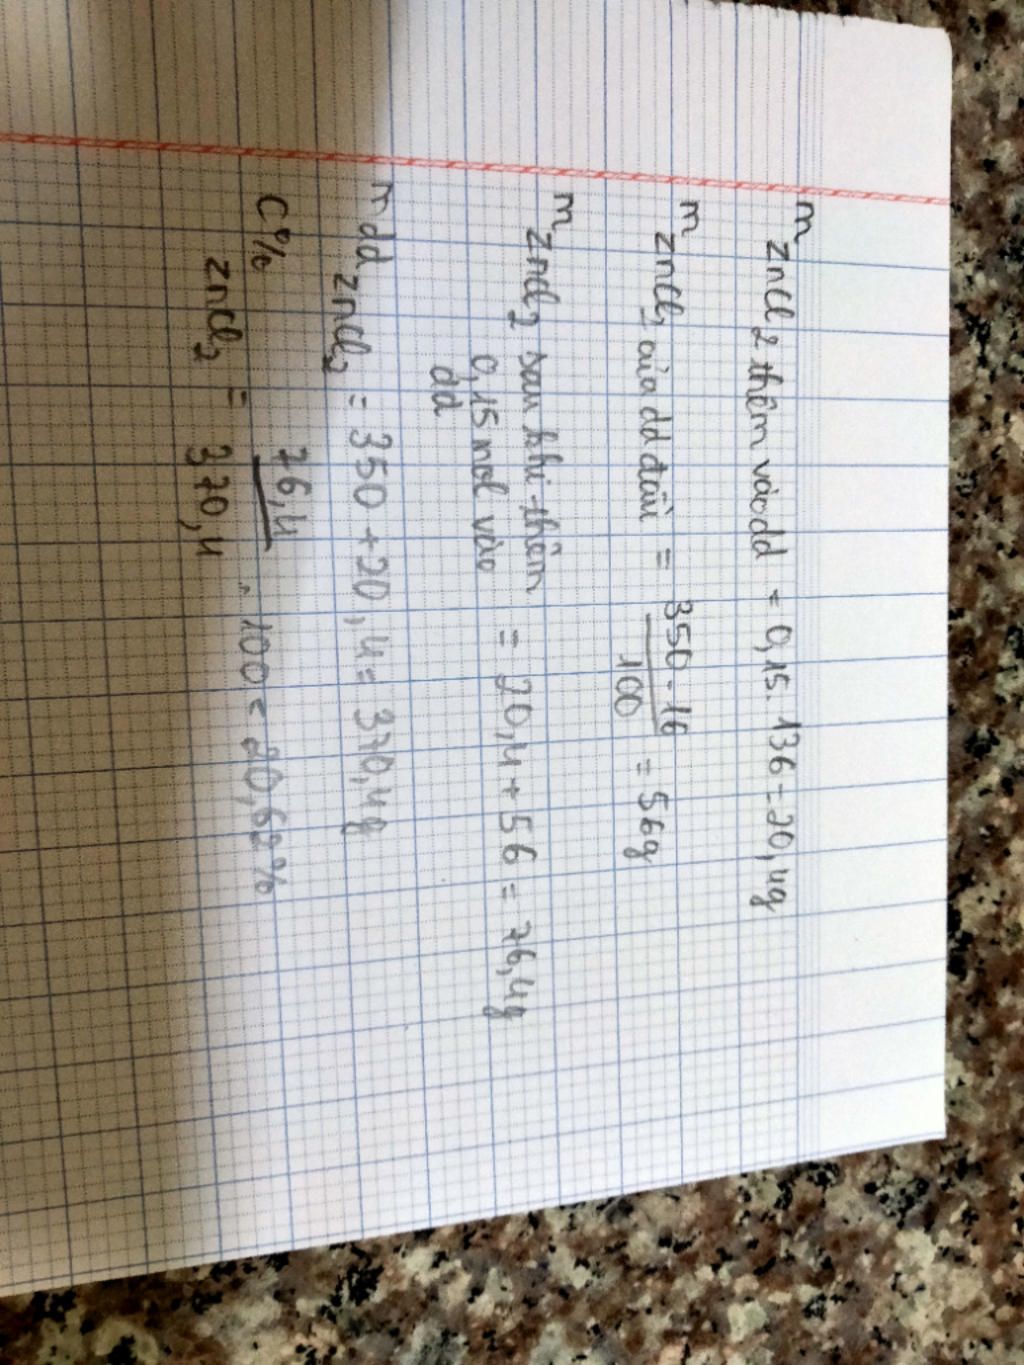 m ZnCl2 thêm vào dd = 0,15 . 136 = 20,4g
m ZnCl2 của dd đầu = 350 . 16 / 100 = 56g
m ZnCl2 sau khi thêm 0,15 mol vào dd = 20,4 + 56 = 76,4g
m dd ZnCl2 = 350 + 20,4 = 370,4g
C% ZnCl2 = 76,4 / 370,4 . 100 = 20,62%